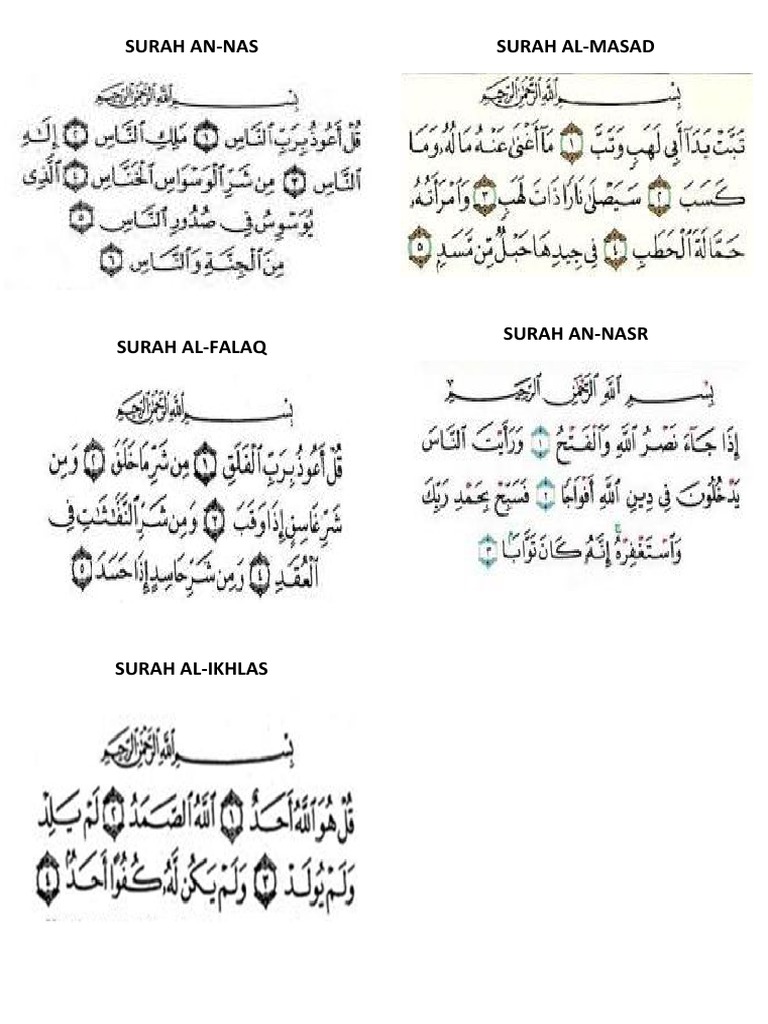 SURAH AN-NAS
بِسْمِ اللَّهِ الرَّحْمَٰنِ الرَّحِيمِ
قُلْ أَعُوذُ بِرَبِّ النَّاسِ ١ مَلِكِ النَّاسِ ٢ إِلَٰهِ
النَّاسِ ٣ مِن شَرِّ الْوَسْوَاسِ الْخَنَّاسِ ٤ الَّذِي
يُوَسْوِسُ فِي صُدُورِ النَّاسِ ٥
مِنَ الْجِنَّةِ وَالنَّاسِ ٦
SURAH AL-FALAQ
بِسْمِ اللَّهِ الرَّحْمَٰنِ الرَّحِيمِ
قُلْ أَعُوذُ بِرَبِّ الْفَلَقِ ١ مِن شَرِّ مَا خَلَقَ ٢ وَمِن
شَرِّ غَاسِقٍ إِذَا وَقَبَ ٣ وَمِن شَرِّ النَّفَّاثَاتِ فِي
الْعُقَدِ ٤ وَمِن شَرِّ حَاسِدٍ إِذَا حَسَدَ ٥
SURAH AL-IKHLAS
بِسْمِ اللَّهِ الرَّحْمَٰنِ الرَّحِيمِ
قُلْ هُوَ اللَّهُ أَحَدٌ ١ اللَّهُ الصَّمَدُ ٢ لَمْ يَلِدْ
وَلَمْ يُولَدْ ٣ وَلَمْ يَكُن لَّهُ كُفُوًا أَحَدٌ ٤
SURAH AL-MASAD
بِسْمِ اللَّهِ الرَّحْمَٰنِ الرَّحِيمِ
تَبَّتْ يَدَا أَبِي لَهَبٍ وَتَبَّ ١ مَا أَغْنَىٰ عَنْهُ مَالُهُ وَمَا
كَسَبَ ٢ سَيَصْلَىٰ نَارًا ذَاتَ لَهَبٍ ٣ وَامْرَأَتُهُ
حَمَّالَةَ الْحَطَبِ ٤ فِي جِيدِهَا حَبْلٌ مِّن مَّسَدٍ ٥
SURAH AN-NASR
بِسْمِ اللَّهِ الرَّحْمَٰنِ الرَّحِيمِ
إِذَا جَاءَ نَصْرُ اللَّهِ وَالْفَتْحُ ١ وَرَأَيْتَ النَّاسَ
يَدْخُلُونَ فِي دِينِ اللَّهِ أَفْوَاجًا ٢ فَسَبِّحْ بِحَمْدِ رَبِّكَ
وَاسْتَغْفِرْهُ إِنَّهُ كَانَ تَوَّابًا ٣